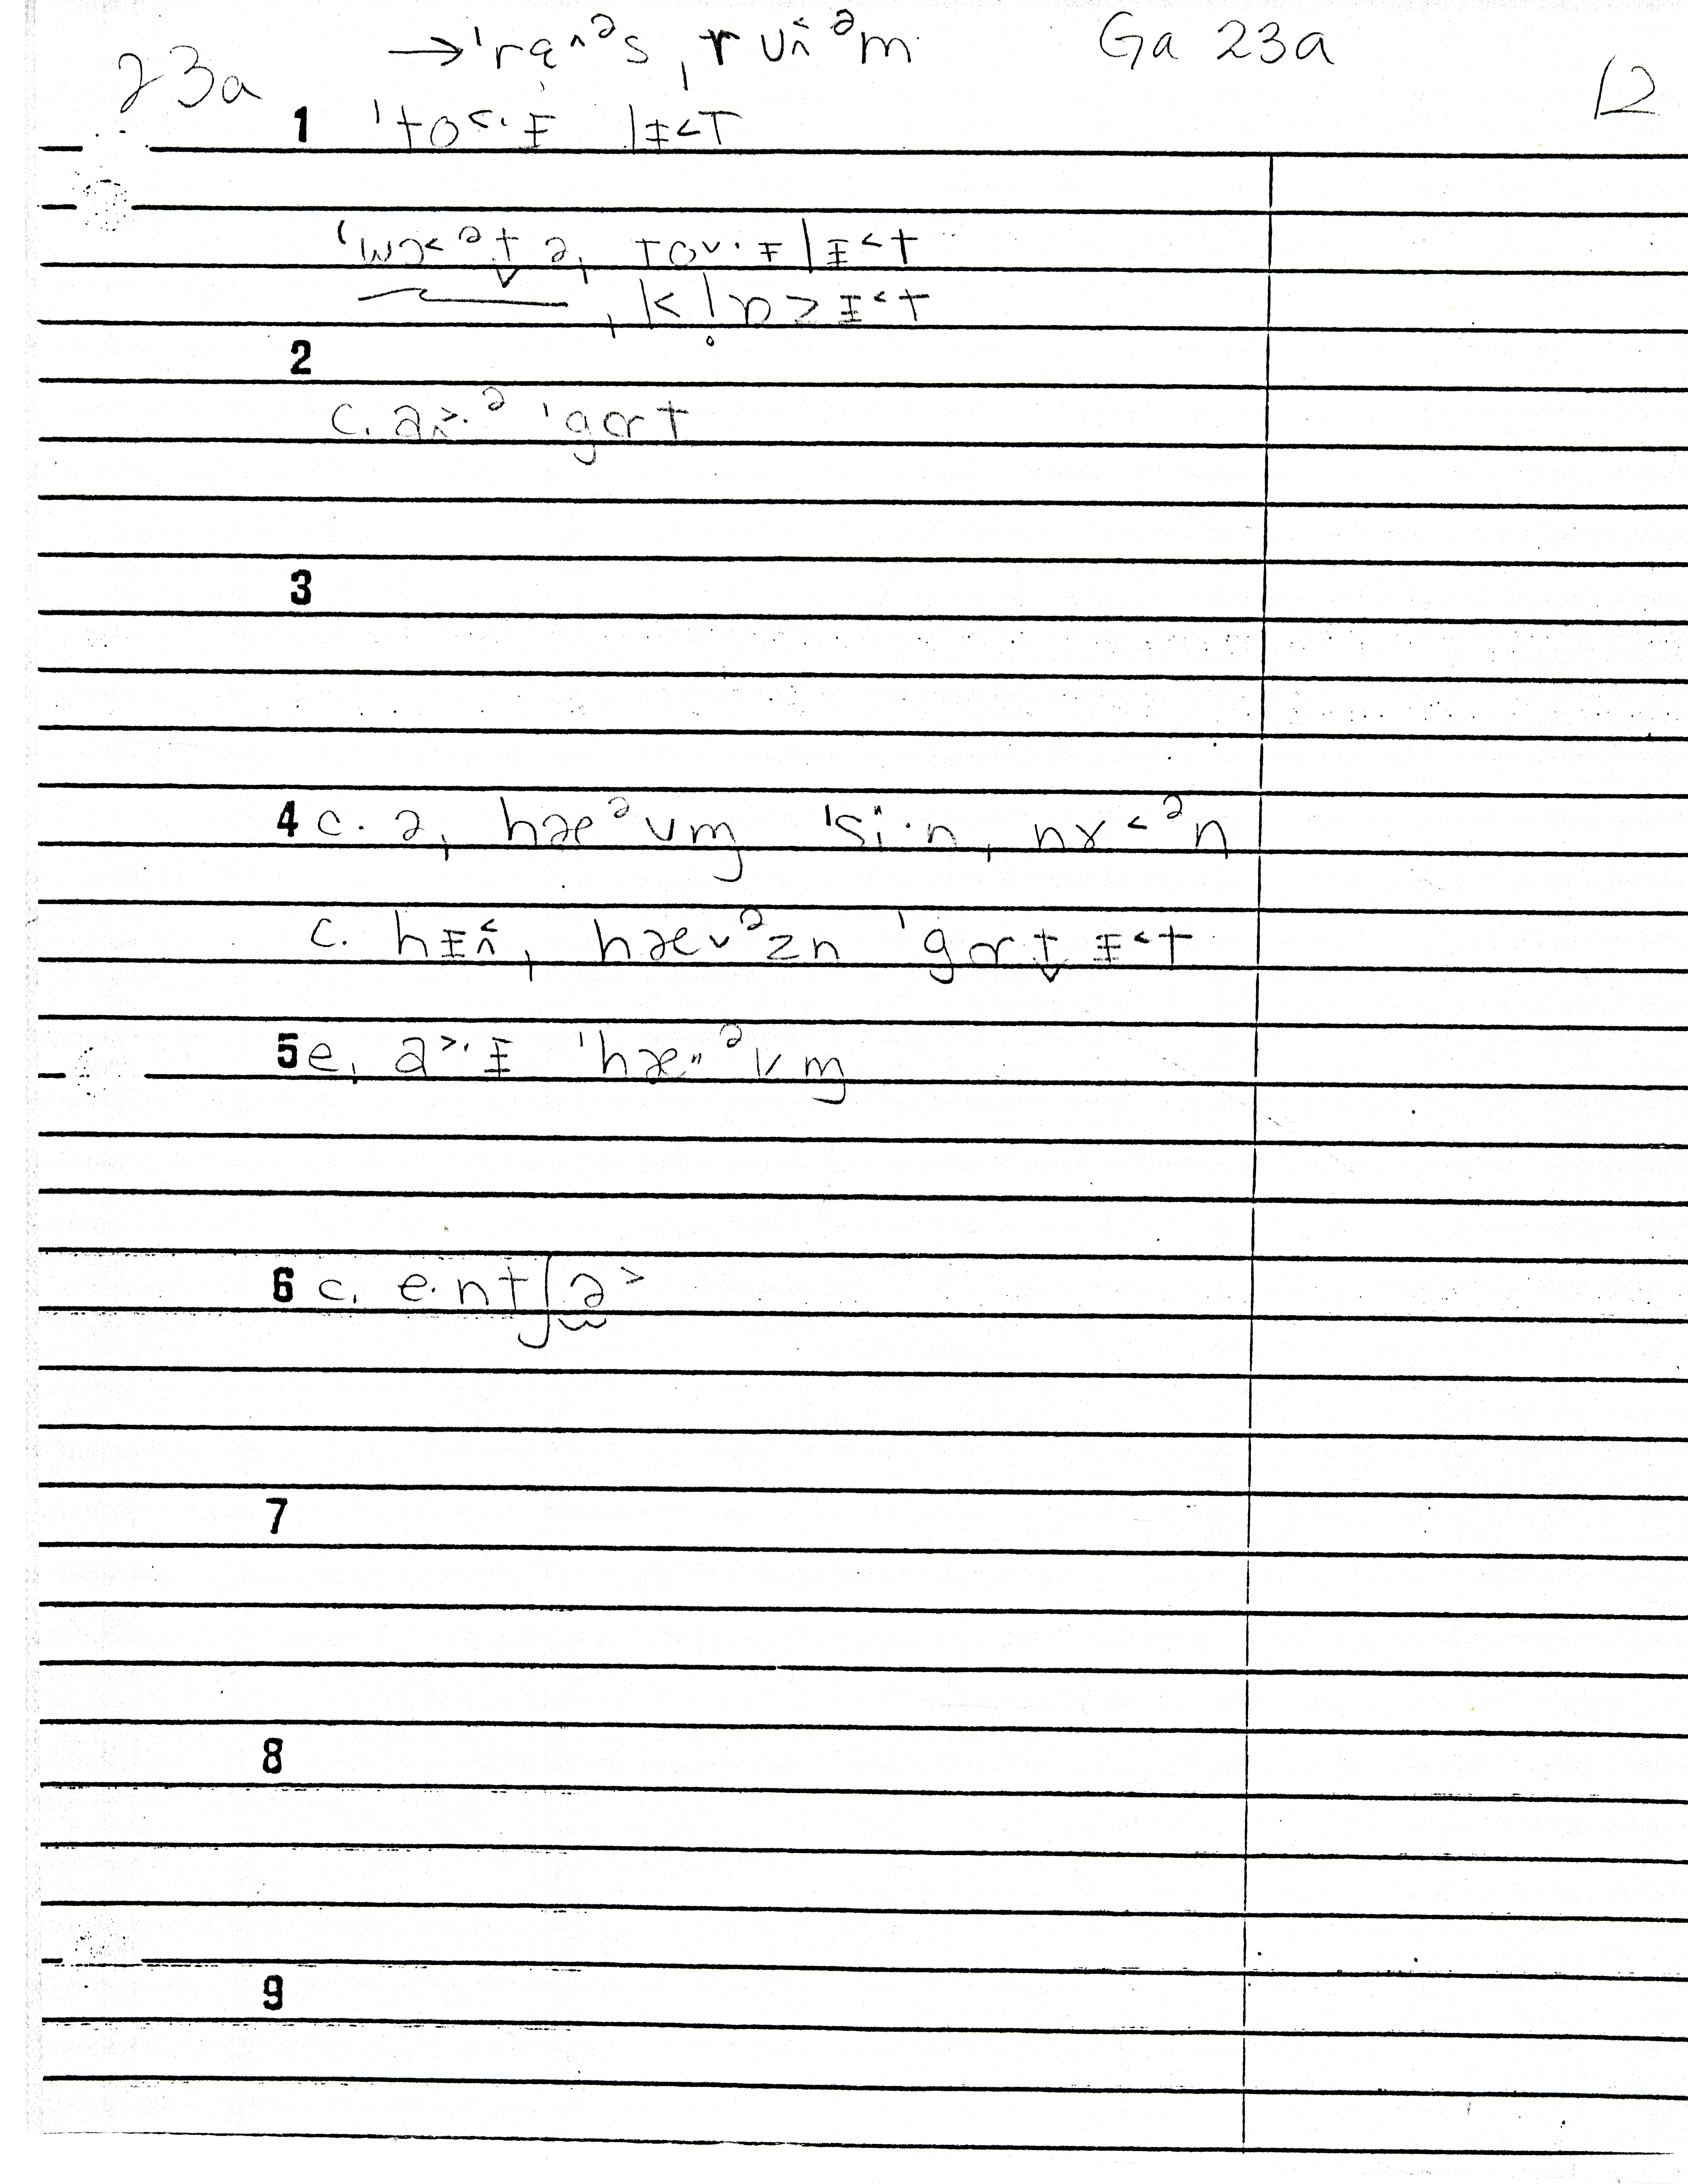 23a → ˈra̝ᵊs ˌrᴜ˰˂ᵊm Ga 23a 12
1 ˈto˂·ᵻ lᵻ˂T
ˈwɔ˂ᵊt̬ əˌ toᵛ·ᵻlᵻ˂t
ˌkl̥ɒzᵻ˂t
2
c. a˰˃·ᵊ ˈgɑrt
3
4 c. əˌ hæᵊvm̩ ˈsi·nˌ nɤ˂ᵊn
c. hᵻ˰˂ˌ hævᵊzn ˈgɑrt̬ ᵻ˂t
5 e. a˃·ᵻ ˈhæᵊvm̩
6 c. e·ntʃə˃
7
8
9